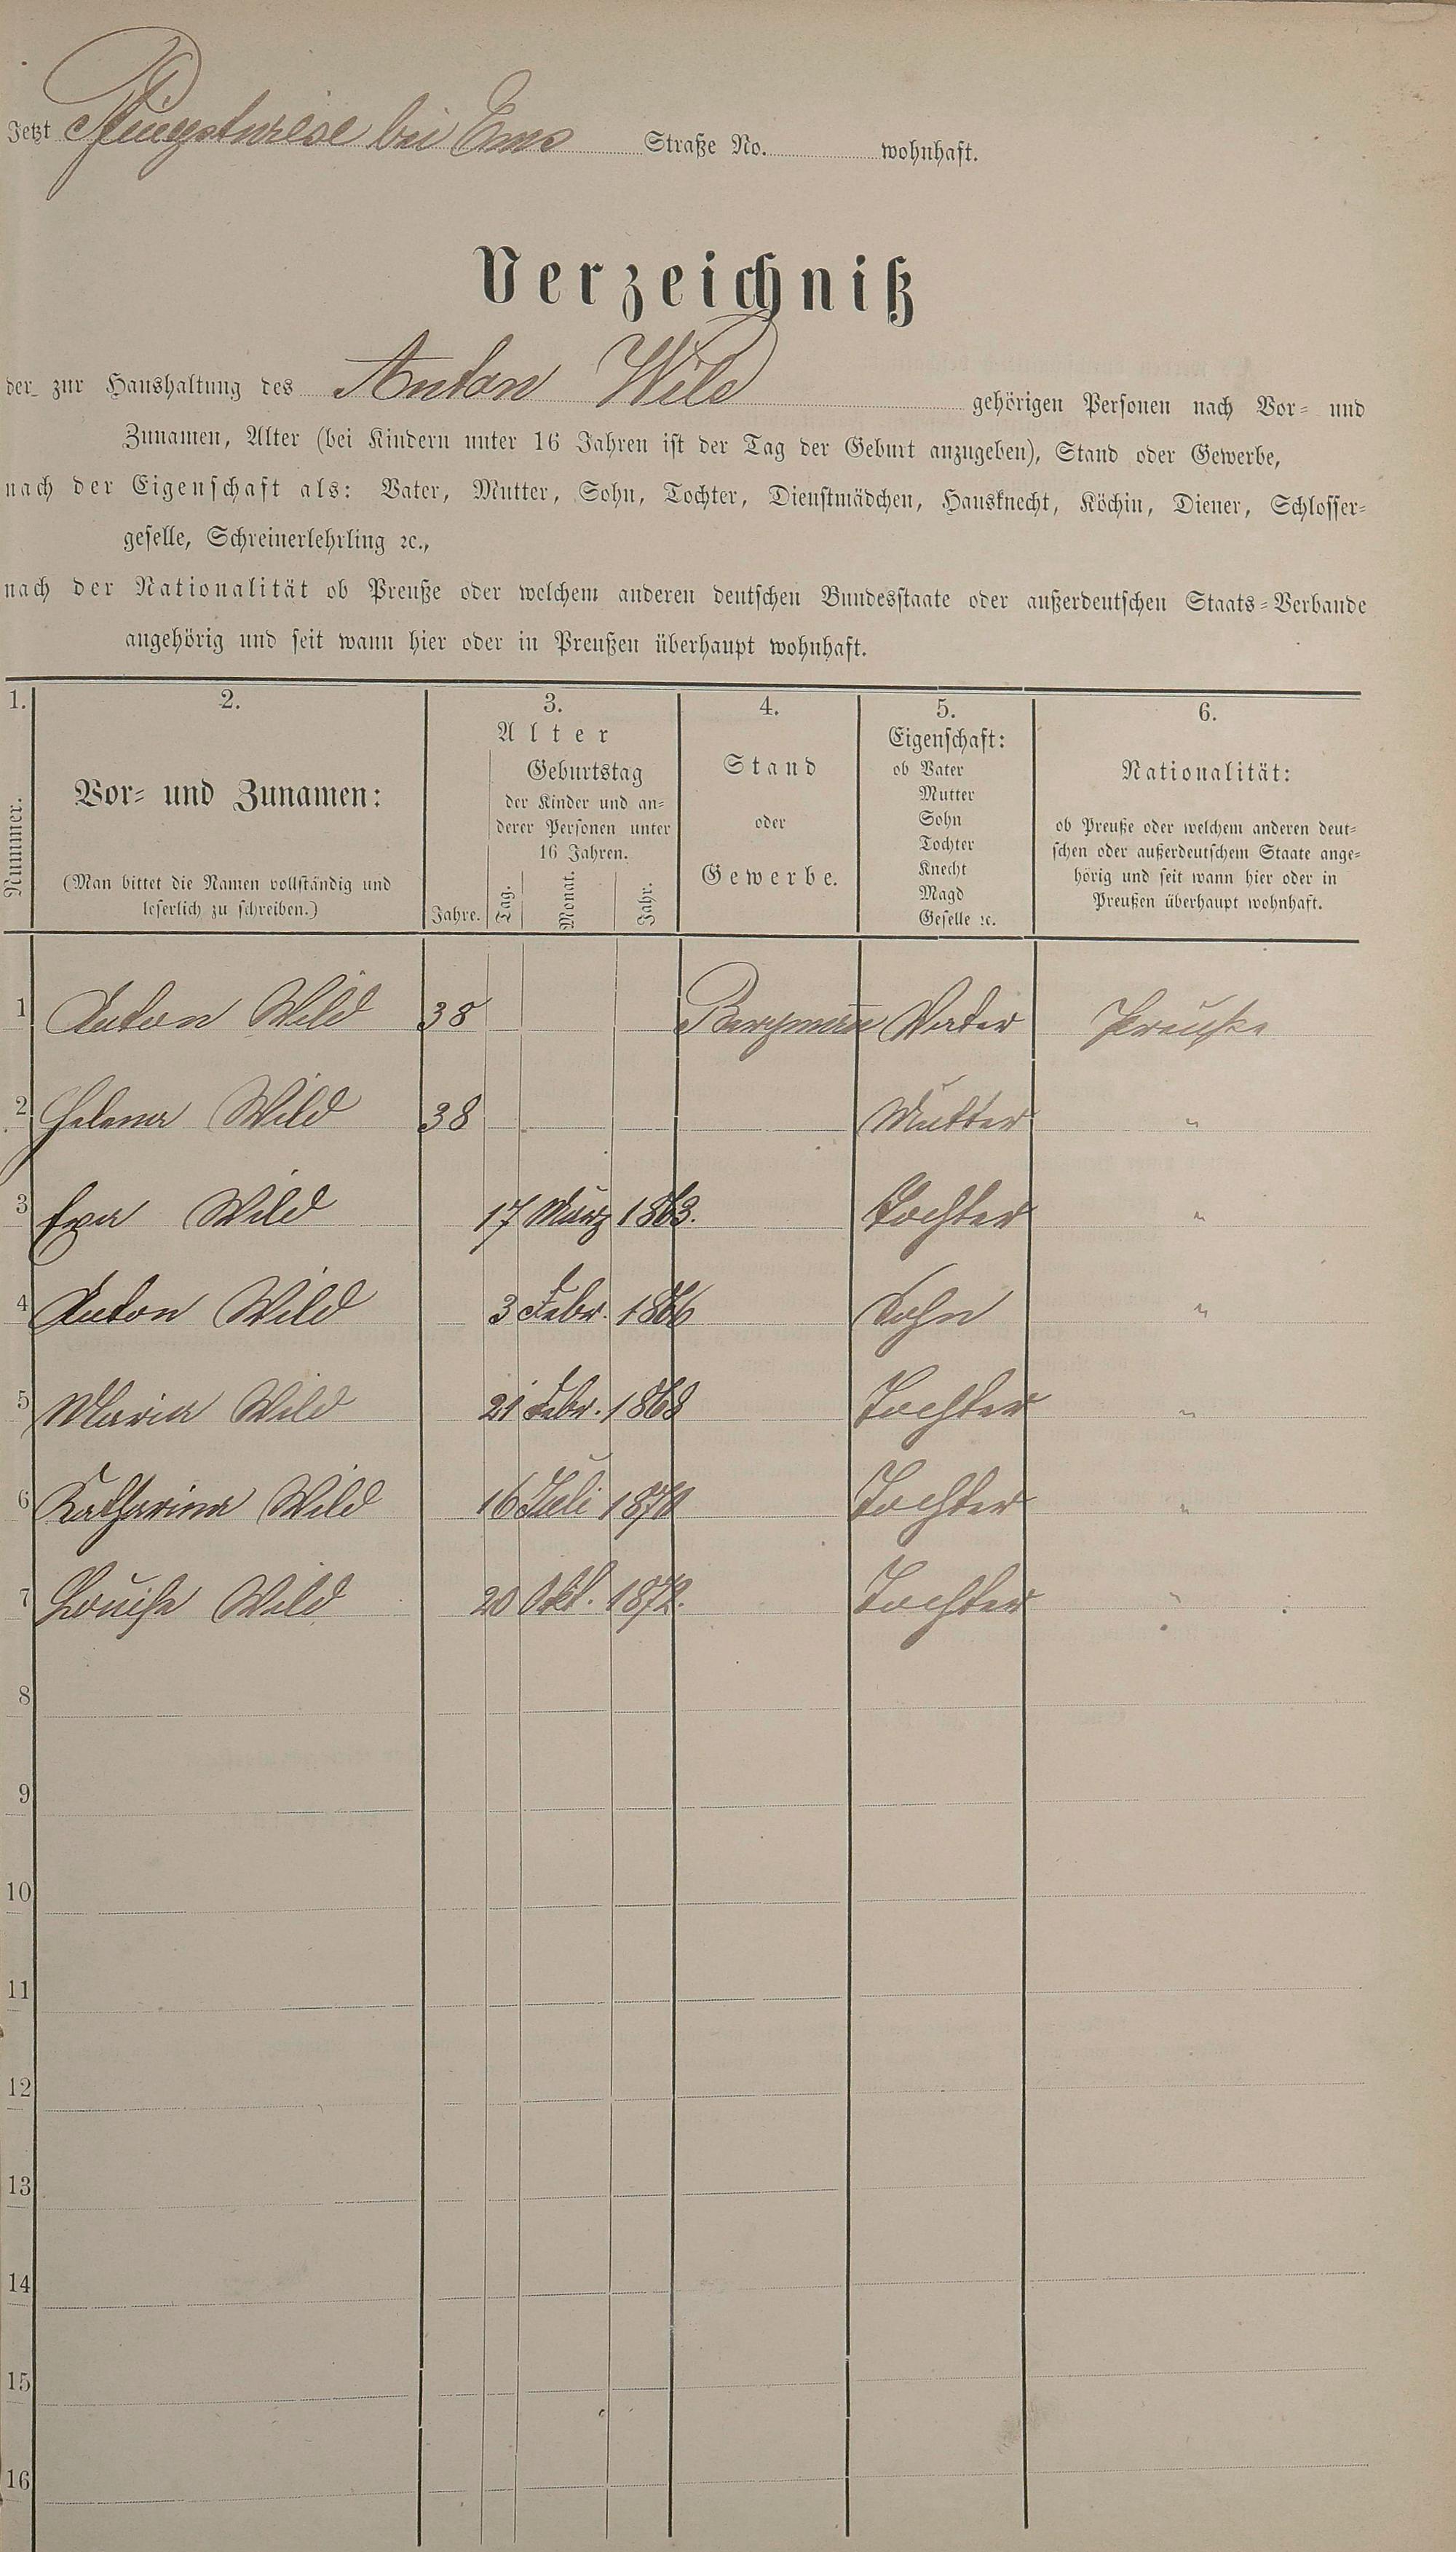 Jetzt Pfingstwiese bei Ems Straße No. wohnhaft.
Verzeichniß
der zur Haushaltung des Anton Wild gehörigen Personen nach Vor- und
Zunamen, Alter (bei Kindern unter 16 Jahren ist der Tag der Geburt anzugeben), Stand oder Gewerbe,
nach der Eigenschaft als: Vater, Mutter, Sohn, Tochter, Dienstmädchen, Hausknecht, Köchin, Diener, Schlosser-
geselle, Schreinerlehrling ꝛc.,
nach der Nationalität ob Preuße oder welchem anderen deutschen Bundesstaate oder außerdeutschen Staats-Verbande
angehörig und seit wann hier oder in Preußen überhaupt wohnhaft.
1. 2. 3. 4. 5. 6.
Nummer.
Vor- und Zunamen:
(Man bittet die Namen vollständig und
leserlich zu schreiben.)
Alter
Jahre.
Geburtstag
der Kinder und an-
derer Personen unter
16 Jahren.
Tag. Monat. Jahr.
Stand
oder
Gewerbe.
Eigenschaft:
ob Vater
Mutter
Sohn
Tochter
Knecht
Magd
Geselle ꝛc.
Nationalität:
ob Preuße oder welchem anderen deut-
schen oder außerdeutschem Staate ange-
hörig und seit wann hier oder in
Preußen überhaupt wohnhaft.
1 Anton Wild 38 Bergman̄ Vater Preuße
2 Helena Wild 38 Mutter "
3 Eva Wild 17 März 1863. Tochter "
4 Anton Wild 3 Febr. 1866 Sohn "
5 Maria Wild 21 Febr. 1868 Tochter "
6 Katharina Wild 16 Juli 1870 Tochter "
7 Louise Wild 20 Okt. 1872. Tochter "
8
9
10
11
12
13
14
15
16